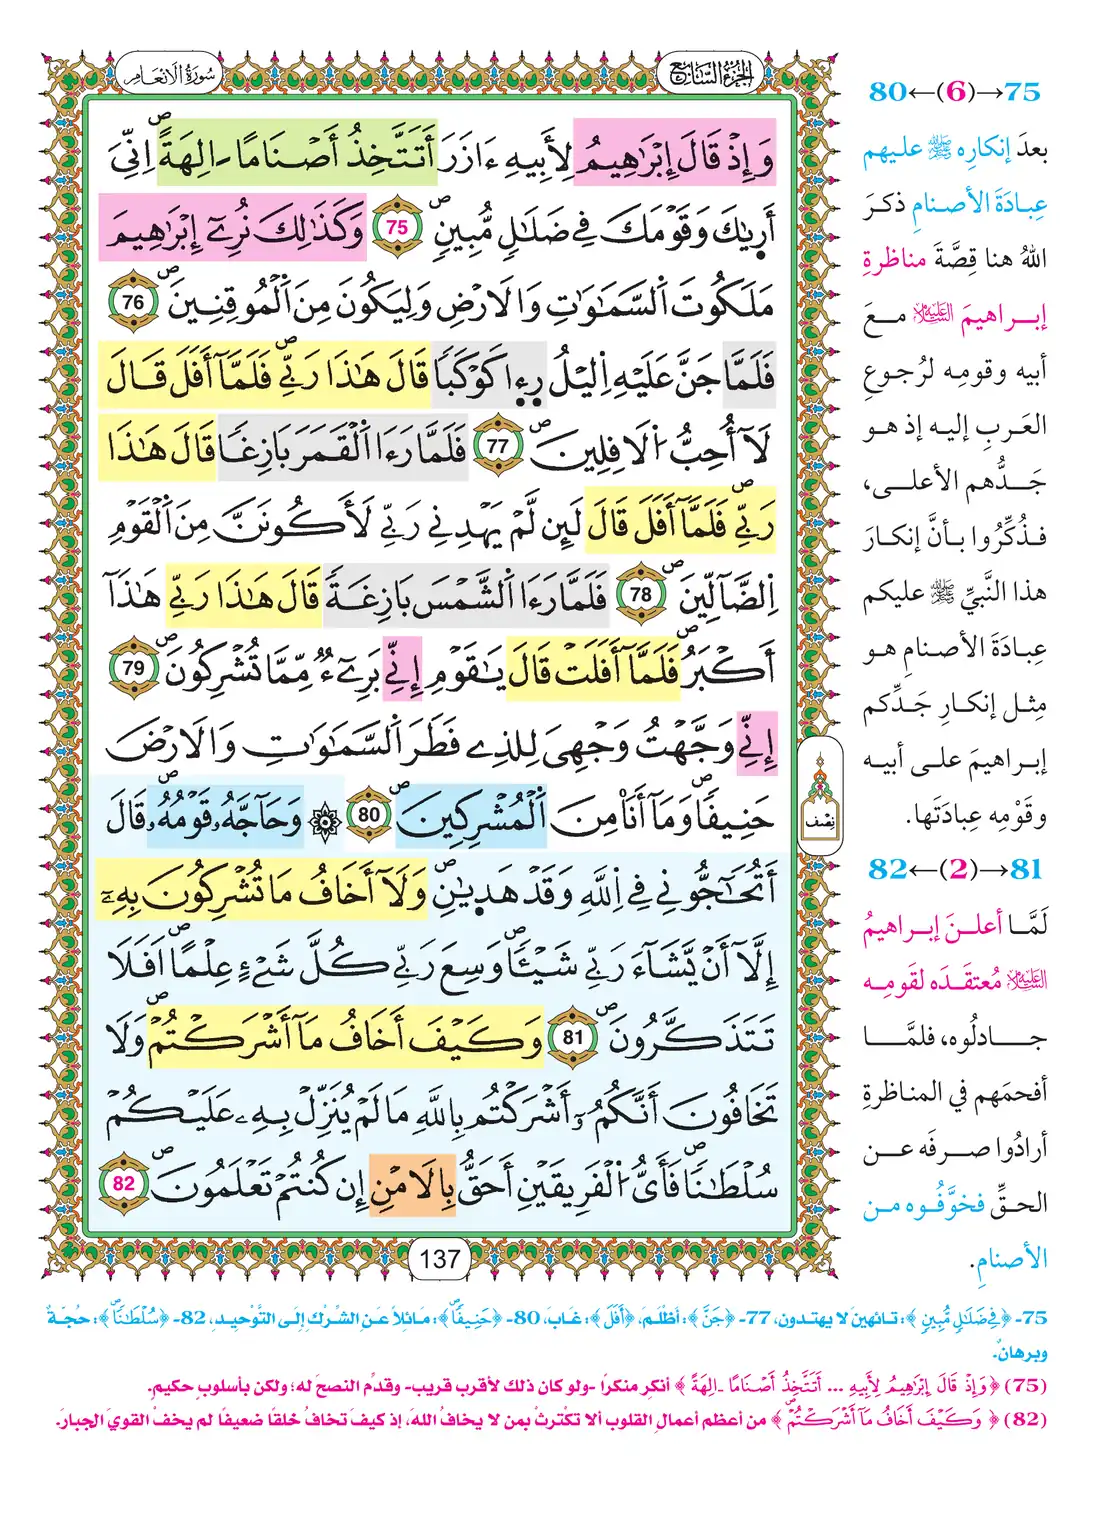 الجزء السابع
سورة الانعام
وَإِذْ قَالَ إِبْرَٰهِيمُ لِأَبِيهِ ءَازَرَ أَتَتَّخِذُ أَصْنَامًا ـالِهَةً اِنِّيَ
أَرٜىٰكَ وَقَوْمَكَ فِي ضَلَٰلٖ مُّبِينٖۖ 75 وَكَذَٰلِكَ نُرِےٓ إِبْرَٰهِيمَ
مَلَكُوتَ اَلسَّمَٰوَٰتِ وَالَارْضِ وَلِيَكُونَ مِنَ اَلْمُوقِنِينَۖ 76
فَلَمَّا جَنَّ عَلَيْهِ اِليْلُ رٜء۪ا كَوْكَبٗا قَالَ هَٰذَا رَبِّےۖ فَلَمَّآ أَفَلَ قَالَ
لَآ أُحِبُّ اُلَافِلِينَۖ 77 فَلَمَّا رَءَا اَلْقَمَرَ بَازِغٗا قَالَ هَٰذَا
رَبِّےۖ فَلَمَّآ أَفَلَ قَالَ لَئِن لَّمْ يَهْدِنِے رَبِّے لَأَكُونَنَّ مِنَ اَلْقَوْمِ
اِلضَّآلِّينَۖ 78 فَلَمَّا رَءَا اَلشَّمْسَ بَازِغَةٗ قَالَ هَٰذَا رَبِّے هَٰذَآ
أَكْبَرُۖ فَلَمَّآ أَفَلَتْ قَالَ يَٰقَوْمِ إِنِّے بَرِےٓءٞ مِّمَّا تُشْرِكُونَۖ 79
إِنِّے وَجَّهْتُ وَجْهِيَ لِلذِے فَطَرَ اَلسَّمَٰوَٰتِ وَالَارْضَ
حَنِيفٗاۖ وَمَآ أَنَا مِنَ اَلْمُشْرِكِينَۖ 80 ۞ وَحَآجَّهُۥ قَوْمُهُۥۖ قَالَ
أَتُحَٰٓجُّونِے فِے اِللَّهِ وَقَدْ هَدٜىٰنِۖ وَلَآ أَخَافُ مَا تُشْرِكُونَ بِهِۦٓ
إِلَّآ أَنْ يَّشَآءَ رَبِّے شَيْـٔٗاۖ وَسِعَ رَبِّے كُلَّ شَےْءٍ عِلْماًۖ اَفَلَا
تَتَذَكَّرُونَۖ 81 وَكَيْفَ أَخَافُ مَآ أَشْرَكْتُمْۖ وَلَا
تَخَافُونَ أَنَّكُمُۥٓ أَشْرَكْتُم بِاللَّهِ مَا لَمْ يُنَزِّلْ بِهِۦ عَلَيْكُمْ
سُلْطَٰنٗاۖ فَأَيُّ اُلْفَرِيقَيْنِ أَحَقُّ بِالَامْنِ إِن كُنتُمْ تَعْلَمُونَۖ 82
نصف
137
80←(6)→75
بعدَ إنكارِه ﷺ عليهم
عِبادَةَ الأصنامِ ذكرَ
اللهُ هنا قِصَّةَ مناظرةِ
إبراهيمَ عليه السلام معَ
أبيه وقومِه لرُجوعِ
العَربِ إليه إذ هو
جَدُّهم الأعلى،
فذُكِّرُوا بأنَّ إنكارَ
هذا النَّبيِّ ﷺ عليكم
عِبادَةَ الأصنامِ هو
مِثل إنكارِ جَدِّكم
إبراهيمَ على أبيه
وقَوْمِه عِبادَتَها.
82←(2)→81
لَمَّا أعلنَ إبراهيمُ
عليه السلام مُعتقَدَه لقومِه
جادلُوه، فلمَّا
أفحمَهم في المناظرةِ
أرادُوا صرفَه عن
الحقِّ فخوَّفُوه من
الأصنامِ.
75- ﴿فِي ضَلَٰلٖ مُّبِينٖ﴾: تائهينَ لا يهتدون، 77- ﴿جَنَّ﴾: أظْلَمَ، ﴿أَفَلَ﴾: غَابَ، 80- ﴿حَنِيفٗاۖ﴾: مَائلاً عَنِ الشِّرْكِ إِلَى التَّوْحِيدِ، 82- ﴿سُلْطَٰنٗاۖ﴾: حُجَّةً
وبرهانً.
(75) ﴿وَإِذْ قَالَ إِبْرَٰهِيمُ لِأَبِيهِ ... أَتَتَّخِذُ أَصْنَامًا ـالِهَةً﴾ أنكِر منكرًا -ولو كان ذلك لأقرب قريب- وقدِّم النصحَ له؛ ولكن بأسلوب حكيم.
(82) ﴿وَكَيْفَ أَخَافُ مَآ أَشْرَكْتُمْۖ﴾ من أعظم أعمالِ القلوب ألا تكْترثْ بمن لا يخافُ اللهَ، إذ كيفَ تخافُ خَلقًا ضعيفًا لم يخفْ القويَ الجبارَ.